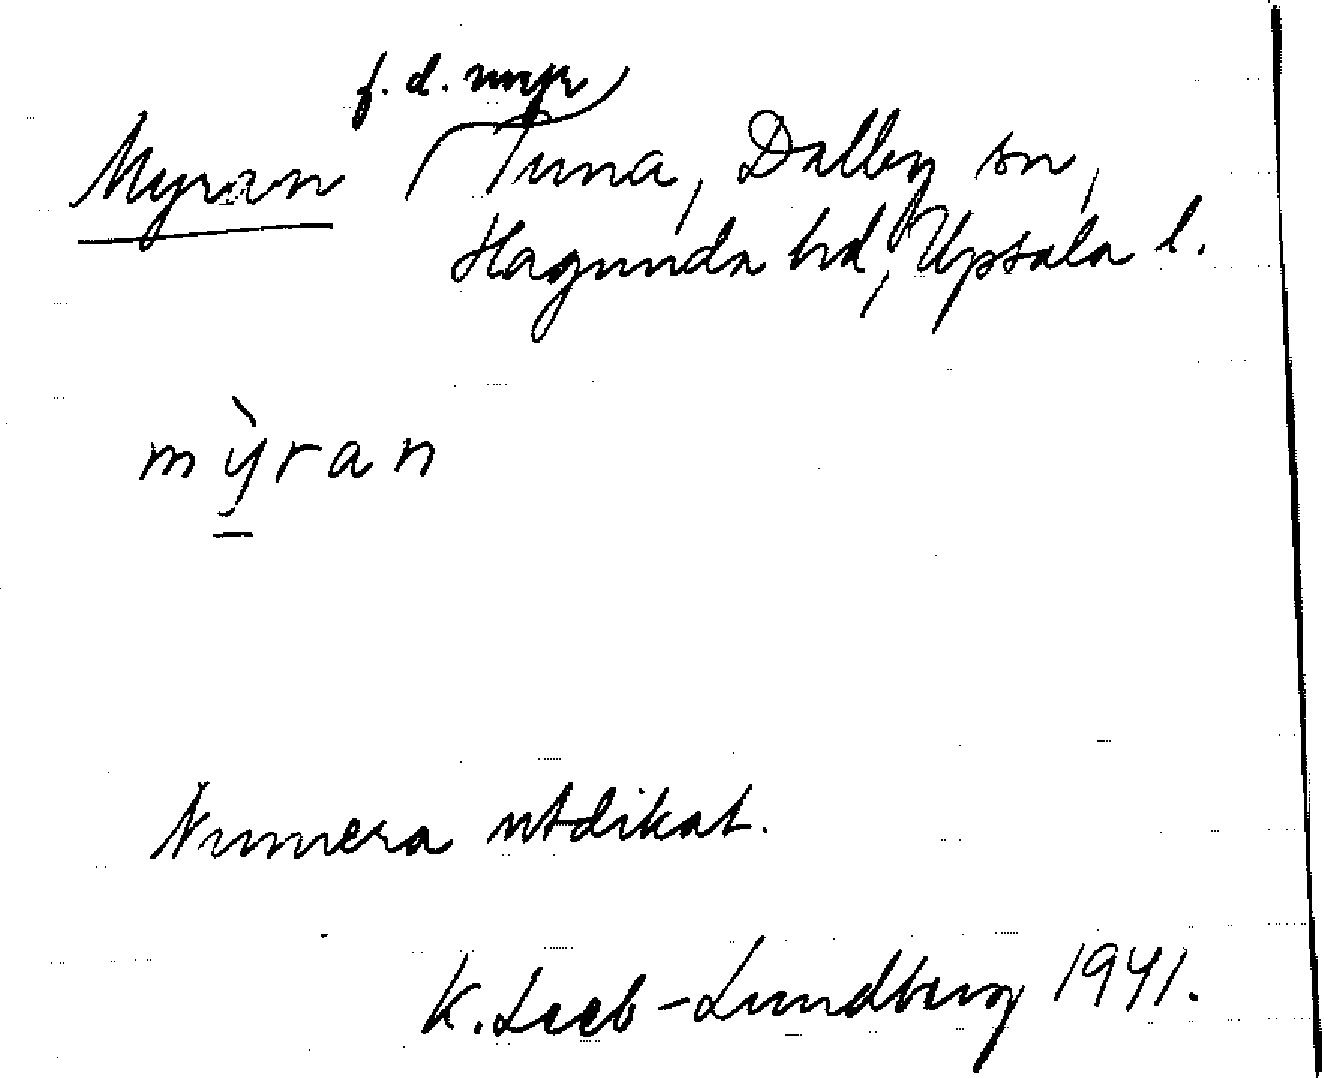 f. d. myr
Myran Tuna, Dalby sn,
Hagunda hd, Upsala l.
mỳran
Numera utdikat.
K. Leeb-Lundberg 1941.